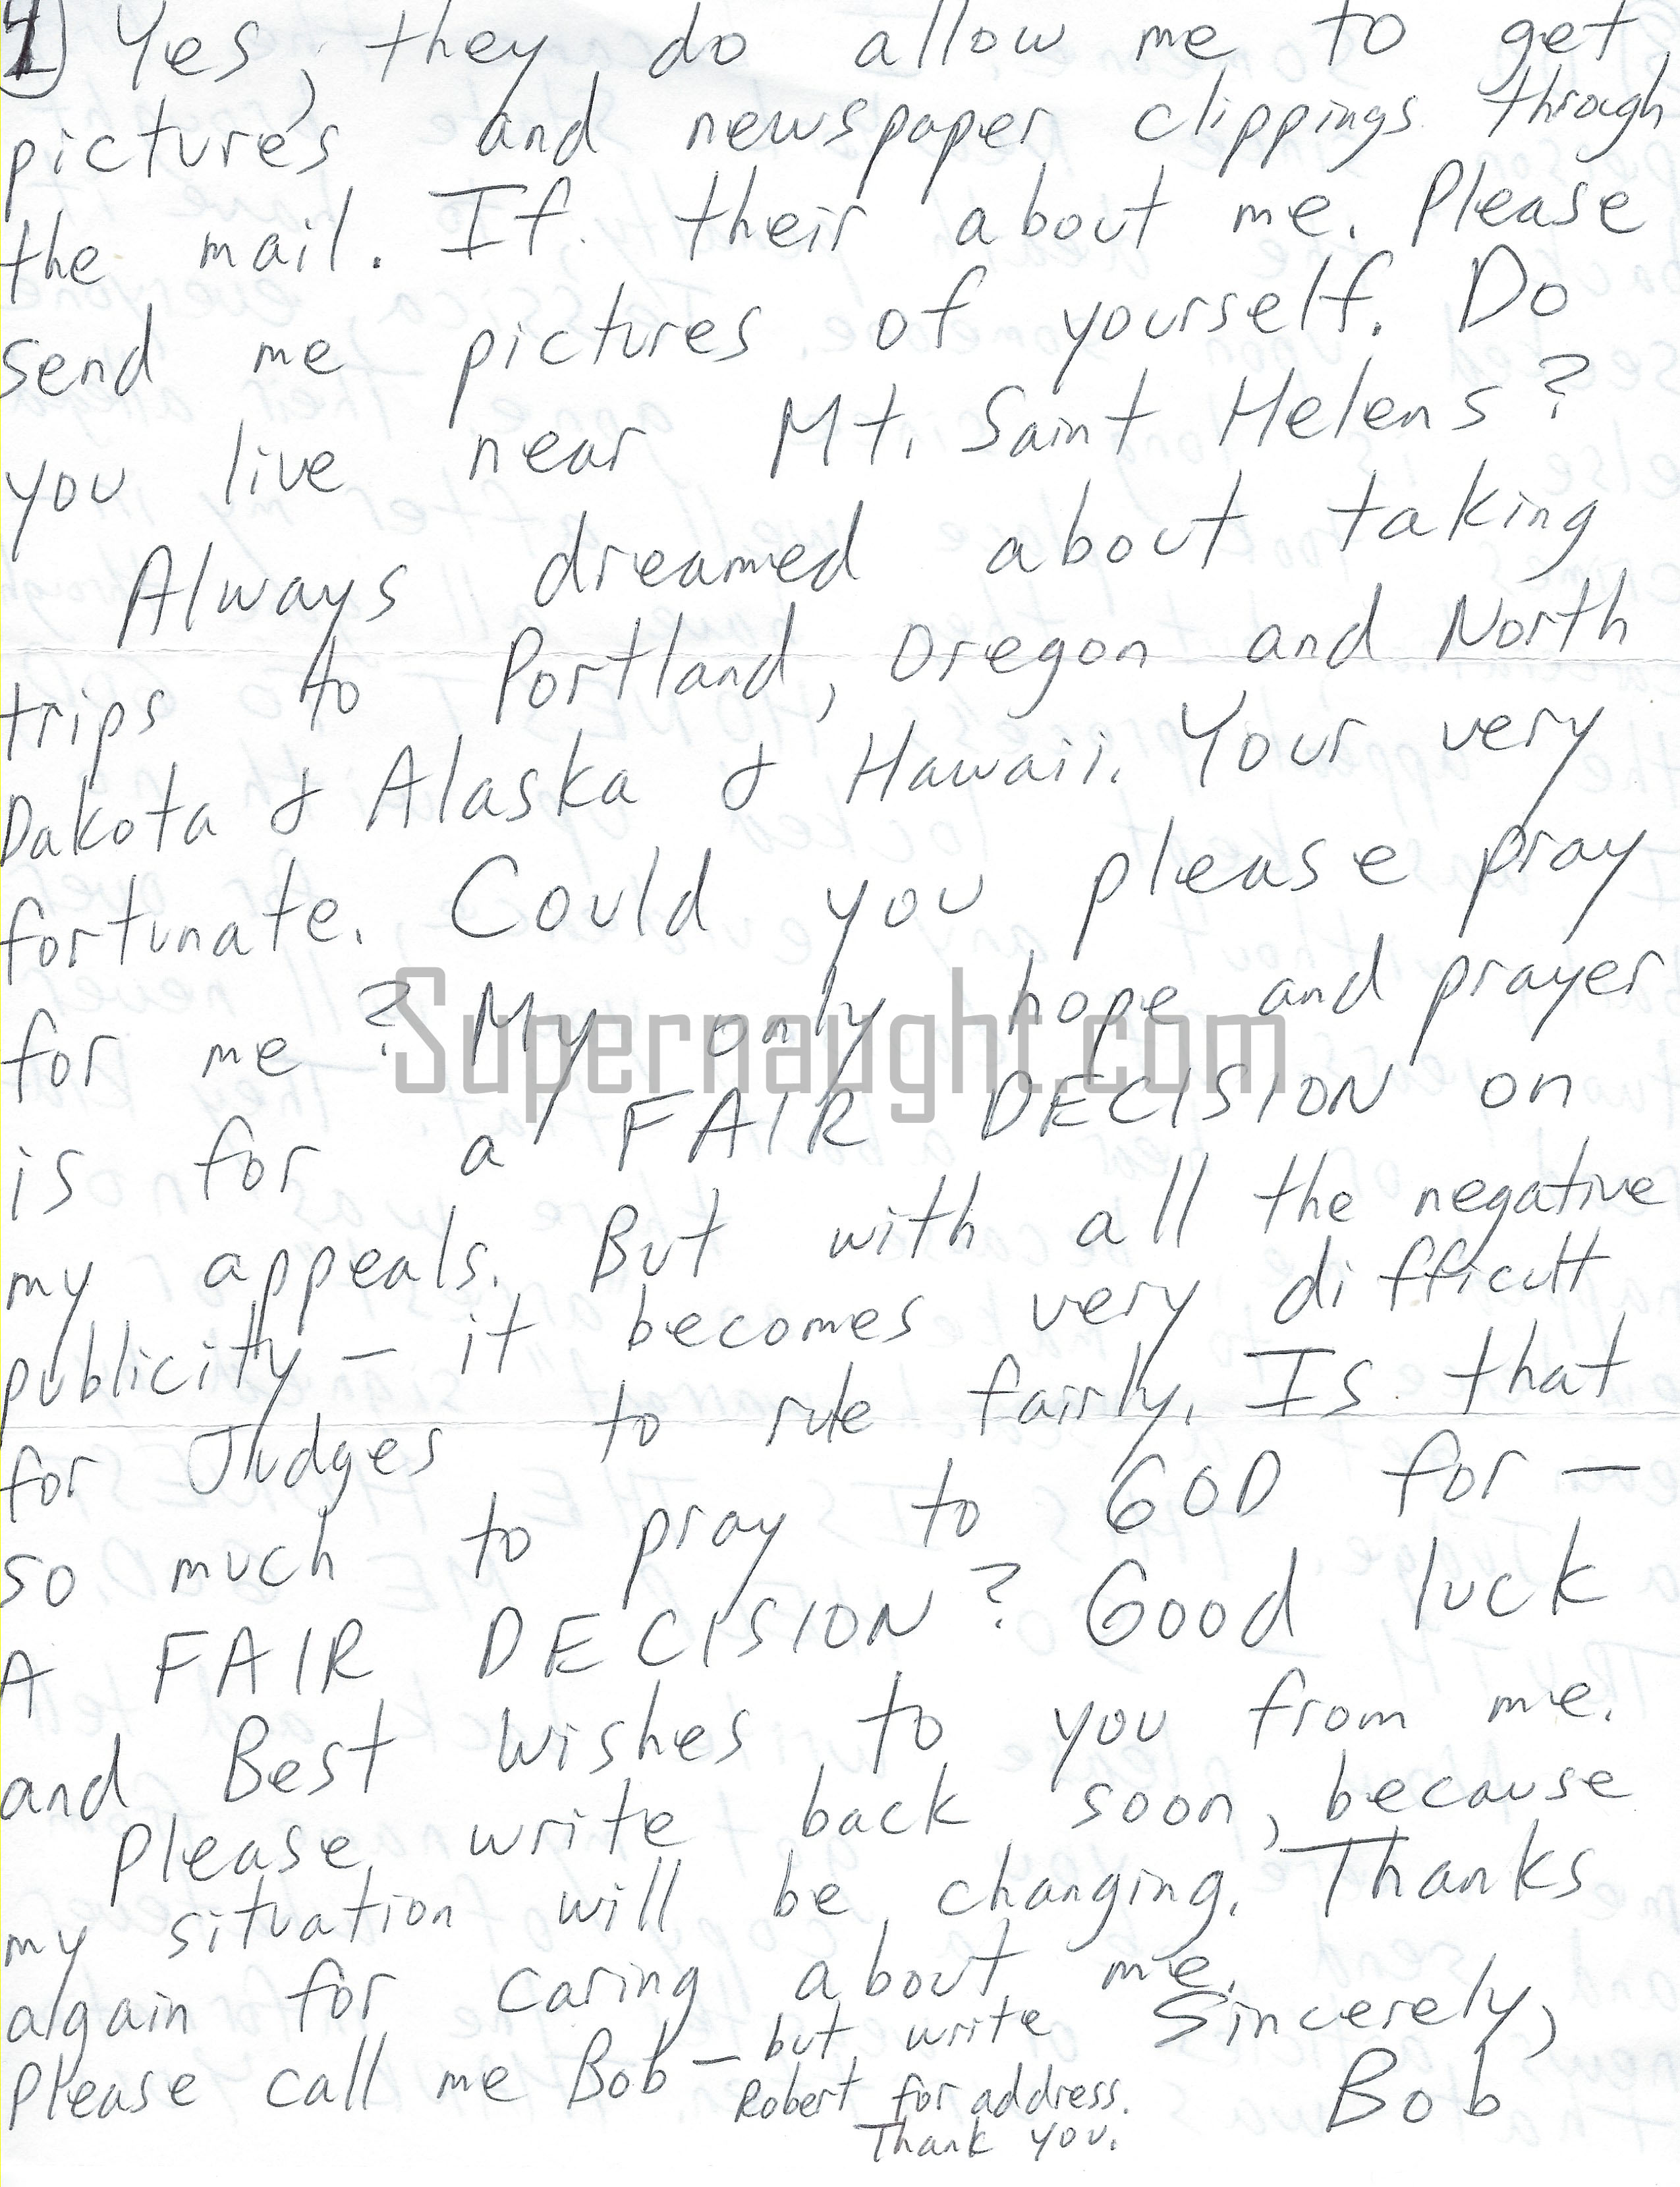 1) Yes, they do allow me to get
pictures and newspaper clippings through
the mail. If their about me. Please
send me pictures of yourself. Do
you live near Mt. Saint Helens?
Always dreamed about taking
trips to Portland, Oregon and North
Dakota & Alaska & Hawaii. Your very
fortunate. Could you please pray
for me? My only hope and prayer
Supernaught.com
is for a FAIR DECISION on
my appeals. But with all the negative
publicity - it becomes very difficult
for Judges to rule fairly. Is that
so much to pray to GOD for -
A FAIR DECISION? Good luck
and Best Wishes to you from me.
Please write back soon, because
my situation will be changing. Thanks
again for caring about me.
Sincerely,
Please call me Bob - but write
Robert for address.
Thank you.
Bob